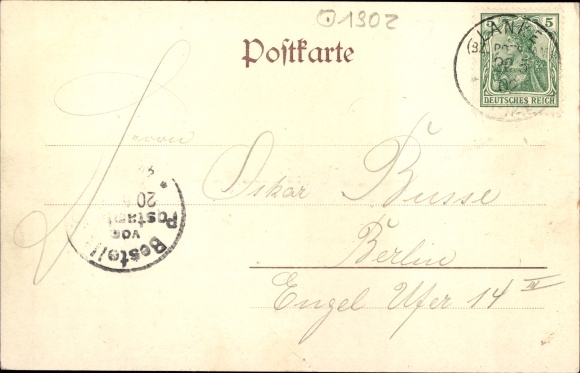 ⊙1902
Postkarte
5
LANKE
DEUTSCHES REICH
Herrn
Oskar Busse
Berlin
Engel Ufer 14 IV
Bestellt
vom
Postamt
20